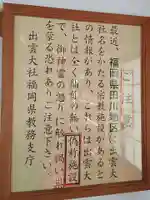 ご注意
最近、福岡県田川地区で出雲大
社名をかたる宗教施設があると
の情報があり、これらは出雲大
社とは全く関係の無い偽称施設
で、御神霊の怒りに触れ
を蒙る恐れあり、ご注意下さい。
出雲大社福岡県教務支庁